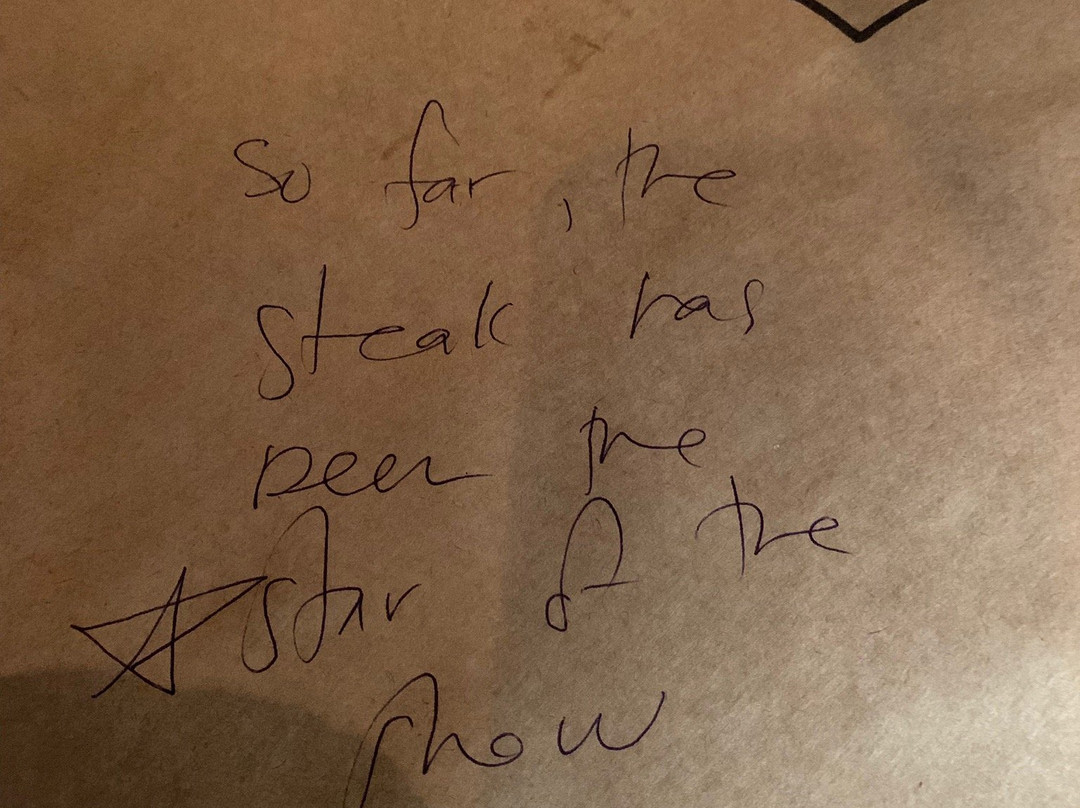 So far, the
steak has
been the
star of the
show